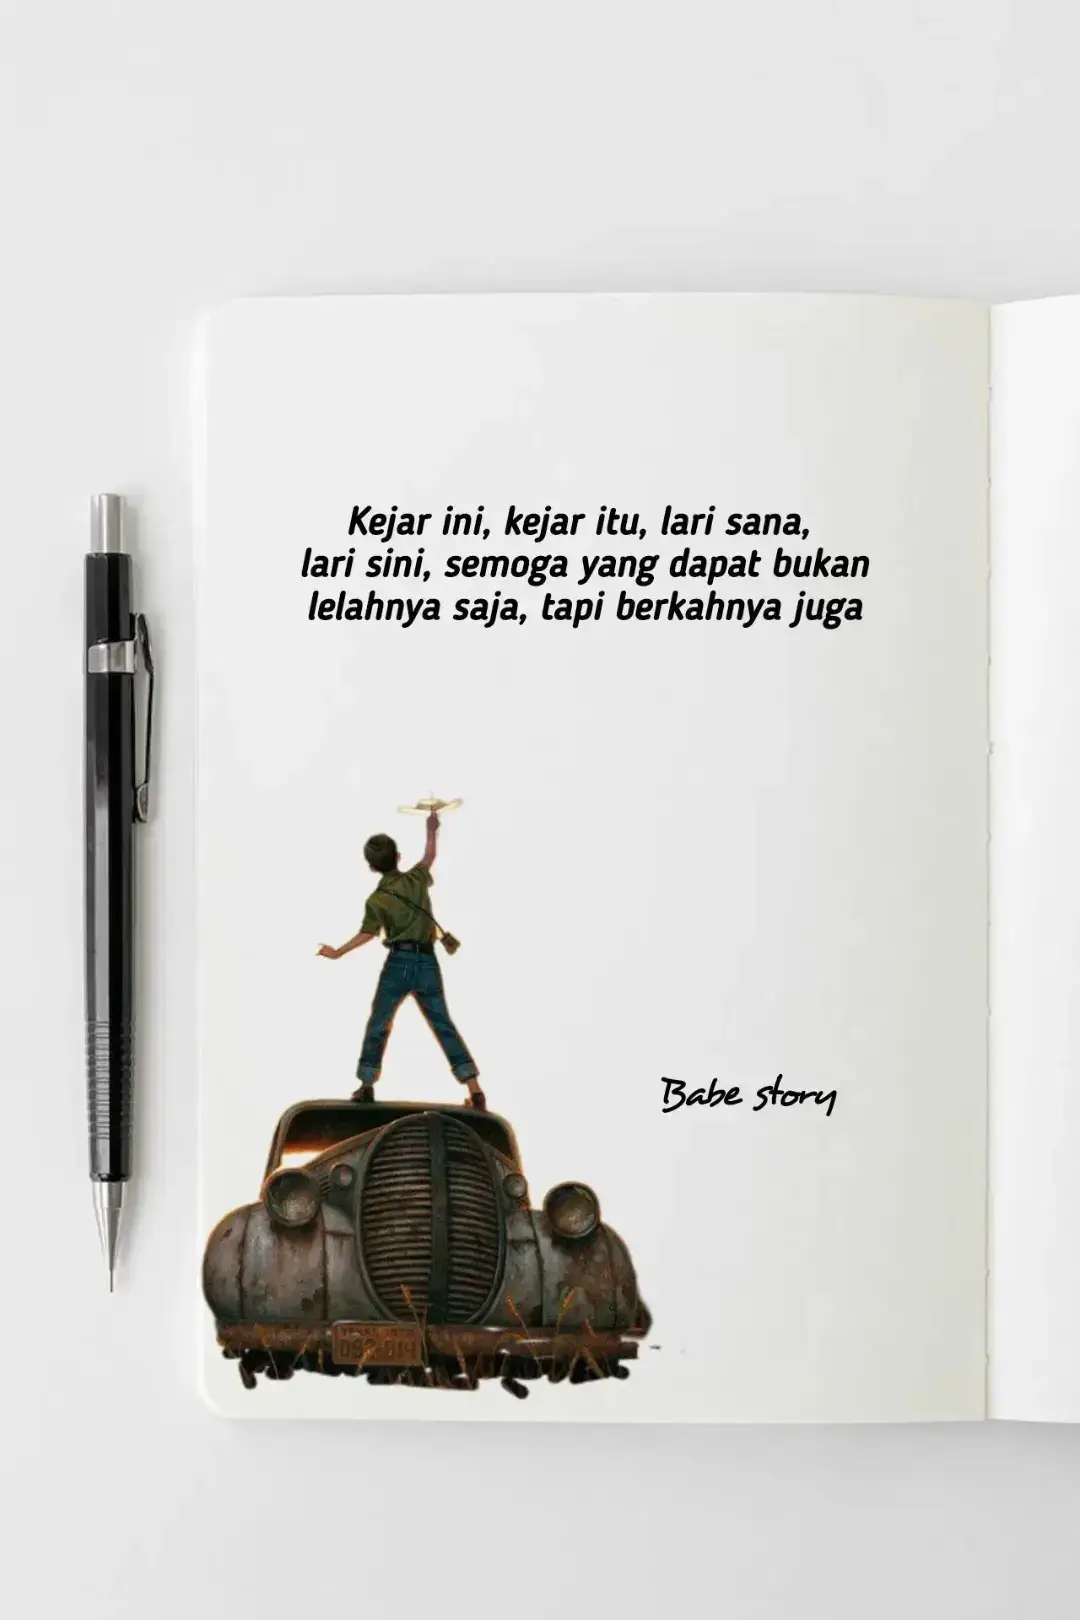 Kejar ini, kejar itu, lari sana,
lari sini, semoga yang dapat bukan
lelahnya saja, tapi berkahnya juga
Babe story